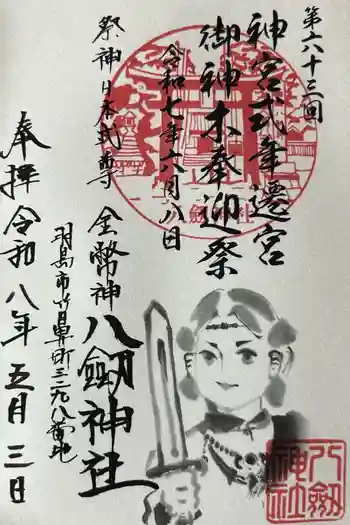 第六十三回
神宮式年遷宮
御神木奉迎祭
令和七年六月八日
祭神日本武尊
金幣神
八劔神社
羽島市竹鼻町三二九八番地
奉拝 令和八年五月三日
八劔
神社